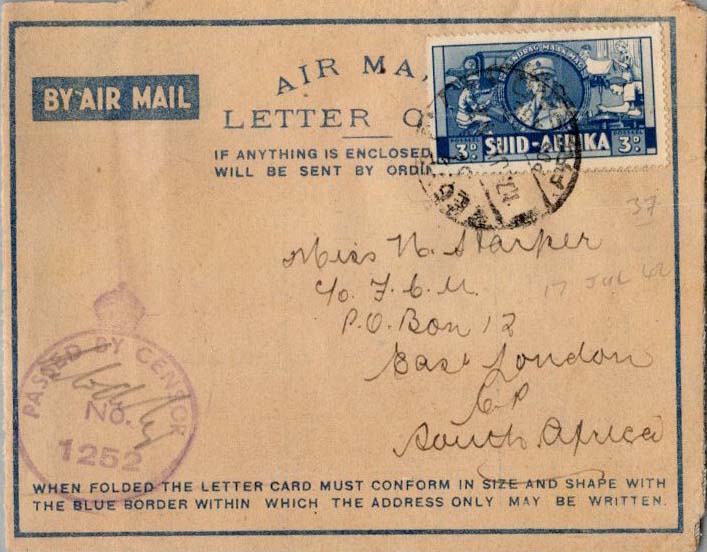 BY AIR MAIL
AIR MA
LETTER C
IF ANYTHING IS ENCLOSED
WILL BE SENT BY ORDIN
3D SUID-AFRIKA 3D
37
Miss N. Harper
c/o F. C. U.
17 JUL 42
P.O. Box 12
East London
C.P.
South Africa
PASSED BY CENSOR
No.
1252
WHEN FOLDED THE LETTER CARD MUST CONFORM IN SIZE AND SHAPE WITH
THE BLUE BORDER WITHIN WHICH THE ADDRESS ONLY MAY BE WRITTEN.